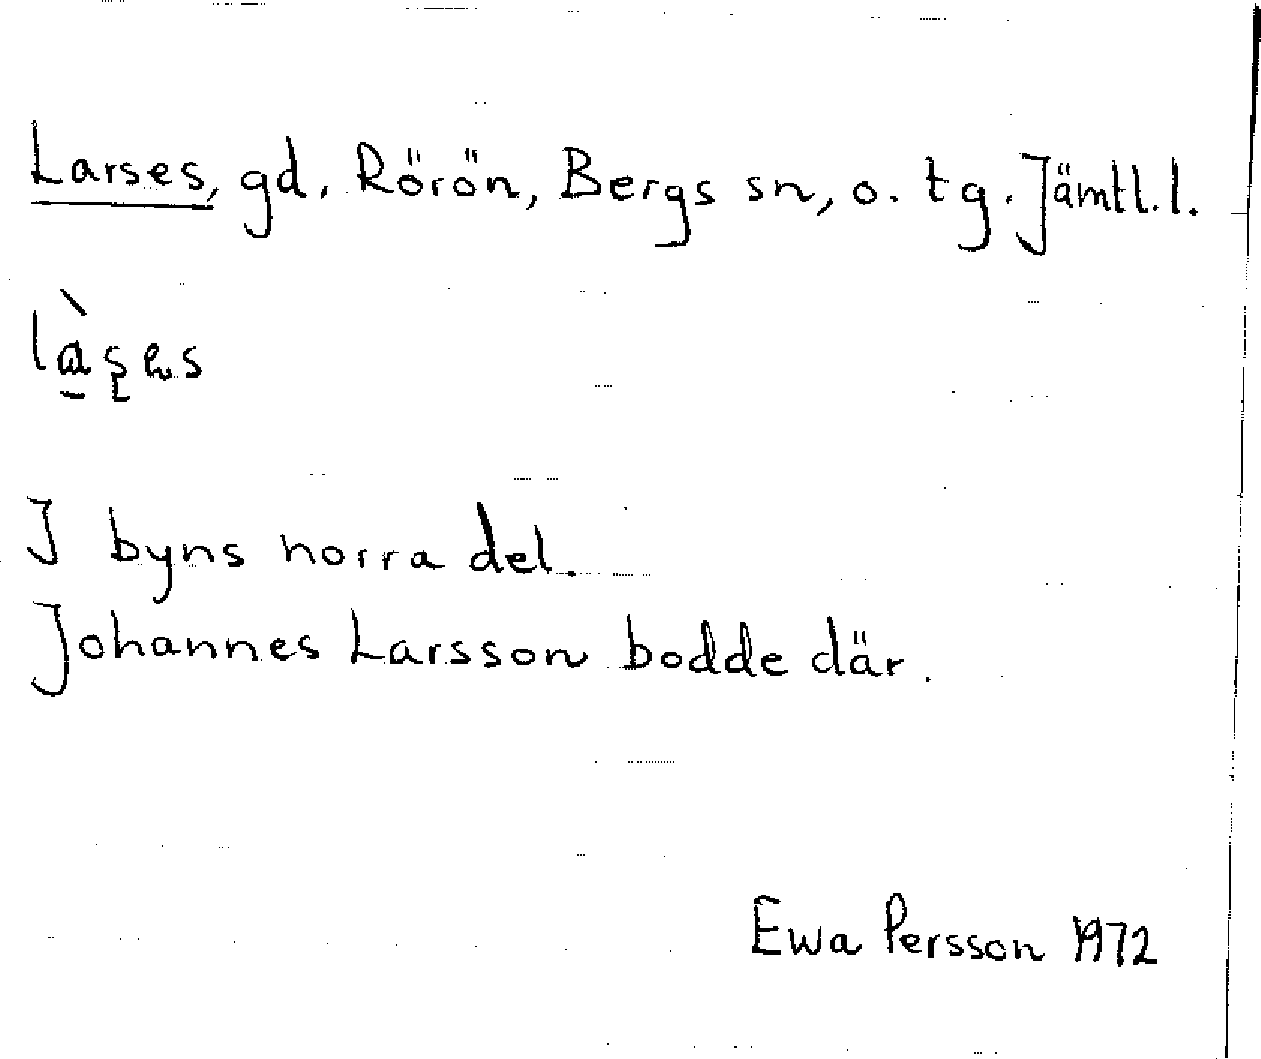 Larses, gd. Rörön, Bergs sn, o. tg. Jämtl.l.
I byns norra del.
Johannes Larsson bodde där.
Ewa Persson 1972